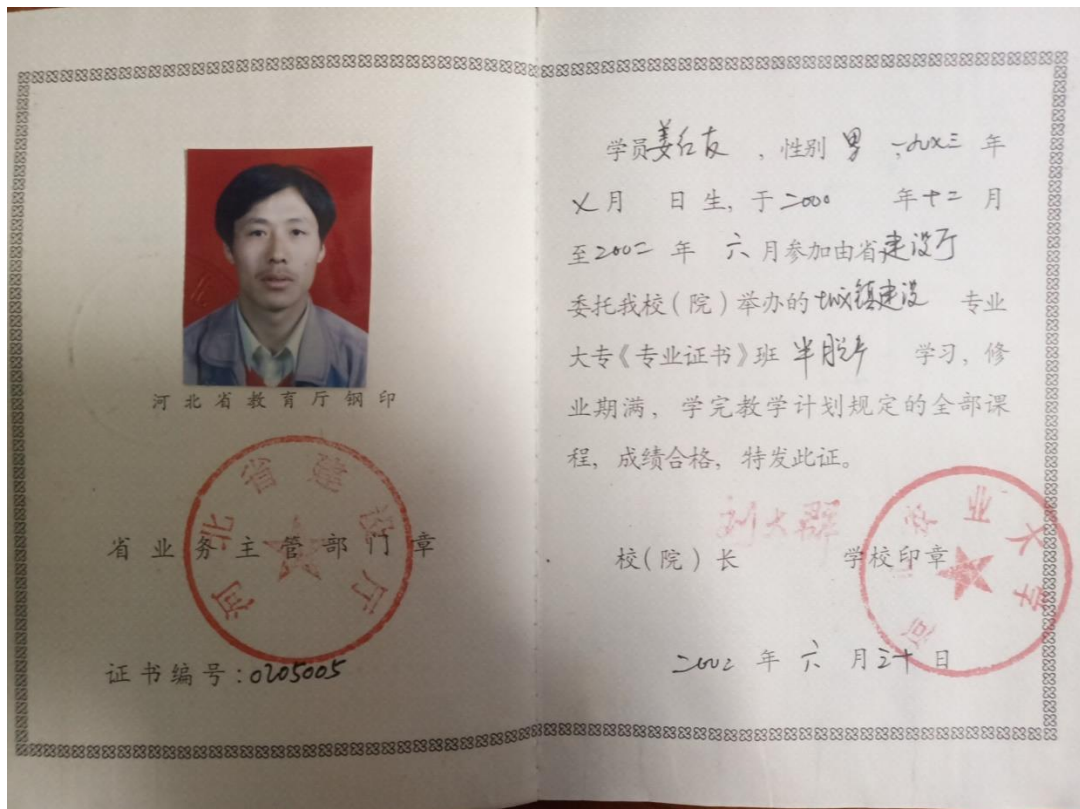 河北省教育厅钢印
河北省建设厅
省业务主管部门章
证书编号:0205005
学员姜红友,性别 男,一九六三 年
七月 日生,于二000 年十二月
至2002年 六月参加由省建设厅
委托我校(院)举办的城镇建设 专业
大专《专业证书》班 半脱产 学习,修
业期满,学完教学计划规定的全部课
程,成绩合格,特发此证。
刘大群
校(院)长 学校印章
河北农业大学
二002 年 六 月三十日